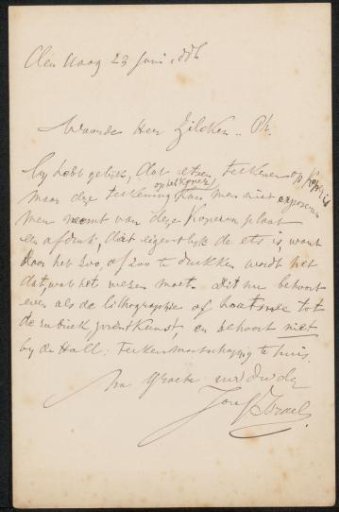 den Haag 23 Juni 886
Waarde Heer Zilcken.. Ph.
Gy hebt gelijk, dat etsen, teekenen op koper is
op het koper
maar deze teekening kan men niet exposeren
Men neemt van deze koperen plaat
een afdruk, dat eigentlijk de ets is want
door het zoo, of zoo te drukken wordt het
dat wat het wezen moet. dit nu behoort
even als de lithographie of houtsnede tot
de rubriek prentkunst, en behoort niet
by de Holl: Teekenmaatschappij te huis.
Na groete uw dw dr
Jozef Israels